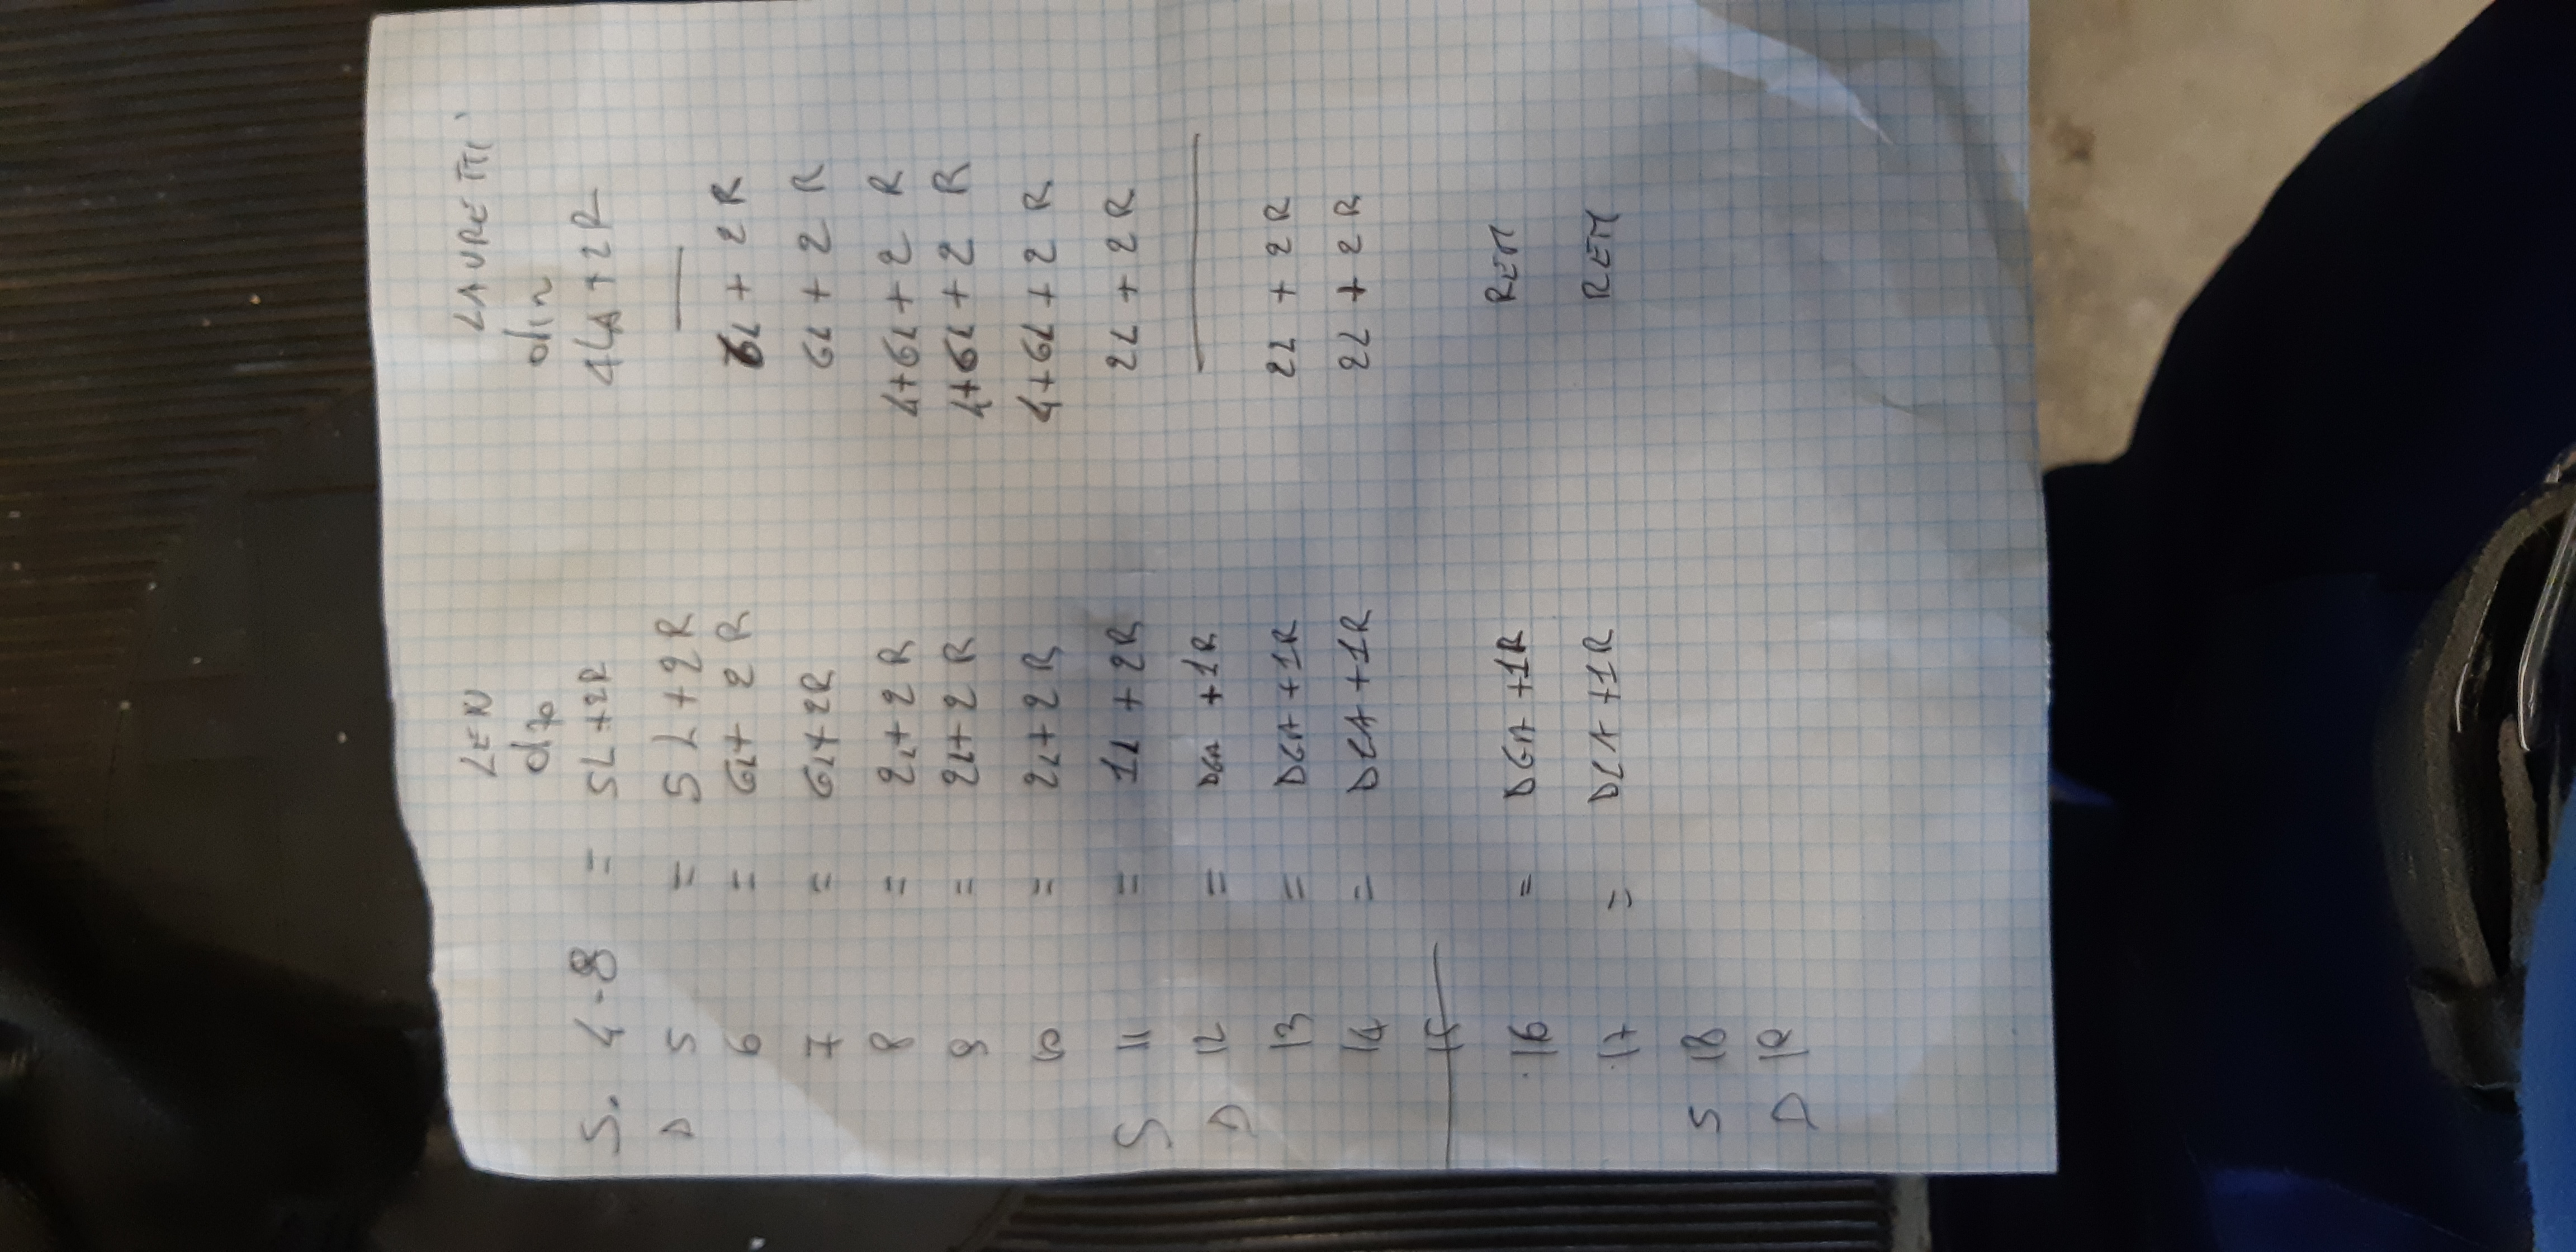 LEN LAURETTI
dto din
S. 4-8 = 5L+2R 4LA+2R
D 5 = 5L+2R —
6 = 6L+2R 6L+2R
7 = 6L+2R 6L+2R
8 = 2L+2R 4+6L+2R
9 = 2L+2R 4+6L+2R
10 = 2L+2R 4+6L+2R
S 11 = 1L+2R 2L+2R
D 12 = DGA+1R —
13 = DGA+1R 2L+2R
14 = DGA+1R 2L+2R
15
.16 = DGA+1R REM
.17 = DGA+1R REM
S 18
D 19